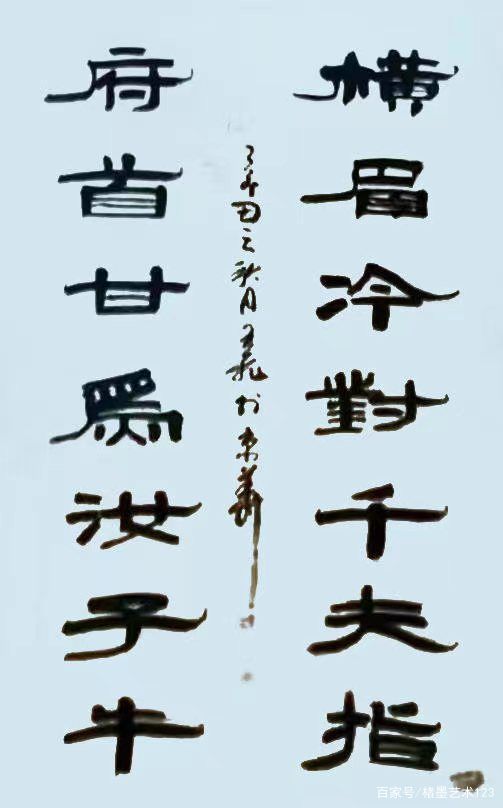 橫眉冷對千夫指
府首甘為汝子牛
之秋月
百家号/格墨艺术123